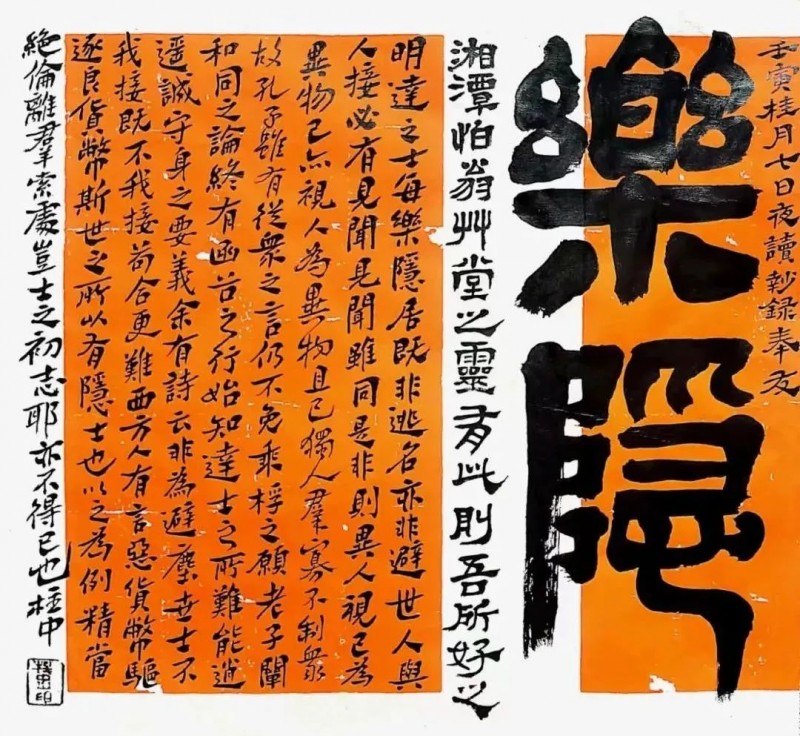 壬寅桂月七日夜讀鈔録奉友
樂隱
湘潭怕翁艸堂之靈有此則吾所好之
明達之士每樂隱居既非逃名亦非避世人與
人接必有見聞見聞雖同是非則異人視己為
異物己亦視人為異物且己獨人羣寡不制衆
故孔子雖有從衆之言仍不免乘桴之願老子闡
和同之論終有函谷之行始知達士之所難能逍
遥誠守身之要義余有詩云非為避塵世士不
我接既不我接苟合更難西方人有言惡貨幣驅
逐良貨幣斯世之所以有隱士也以之為例精當
絶倫離羣索處豈士之初志耶亦不得已也桂中